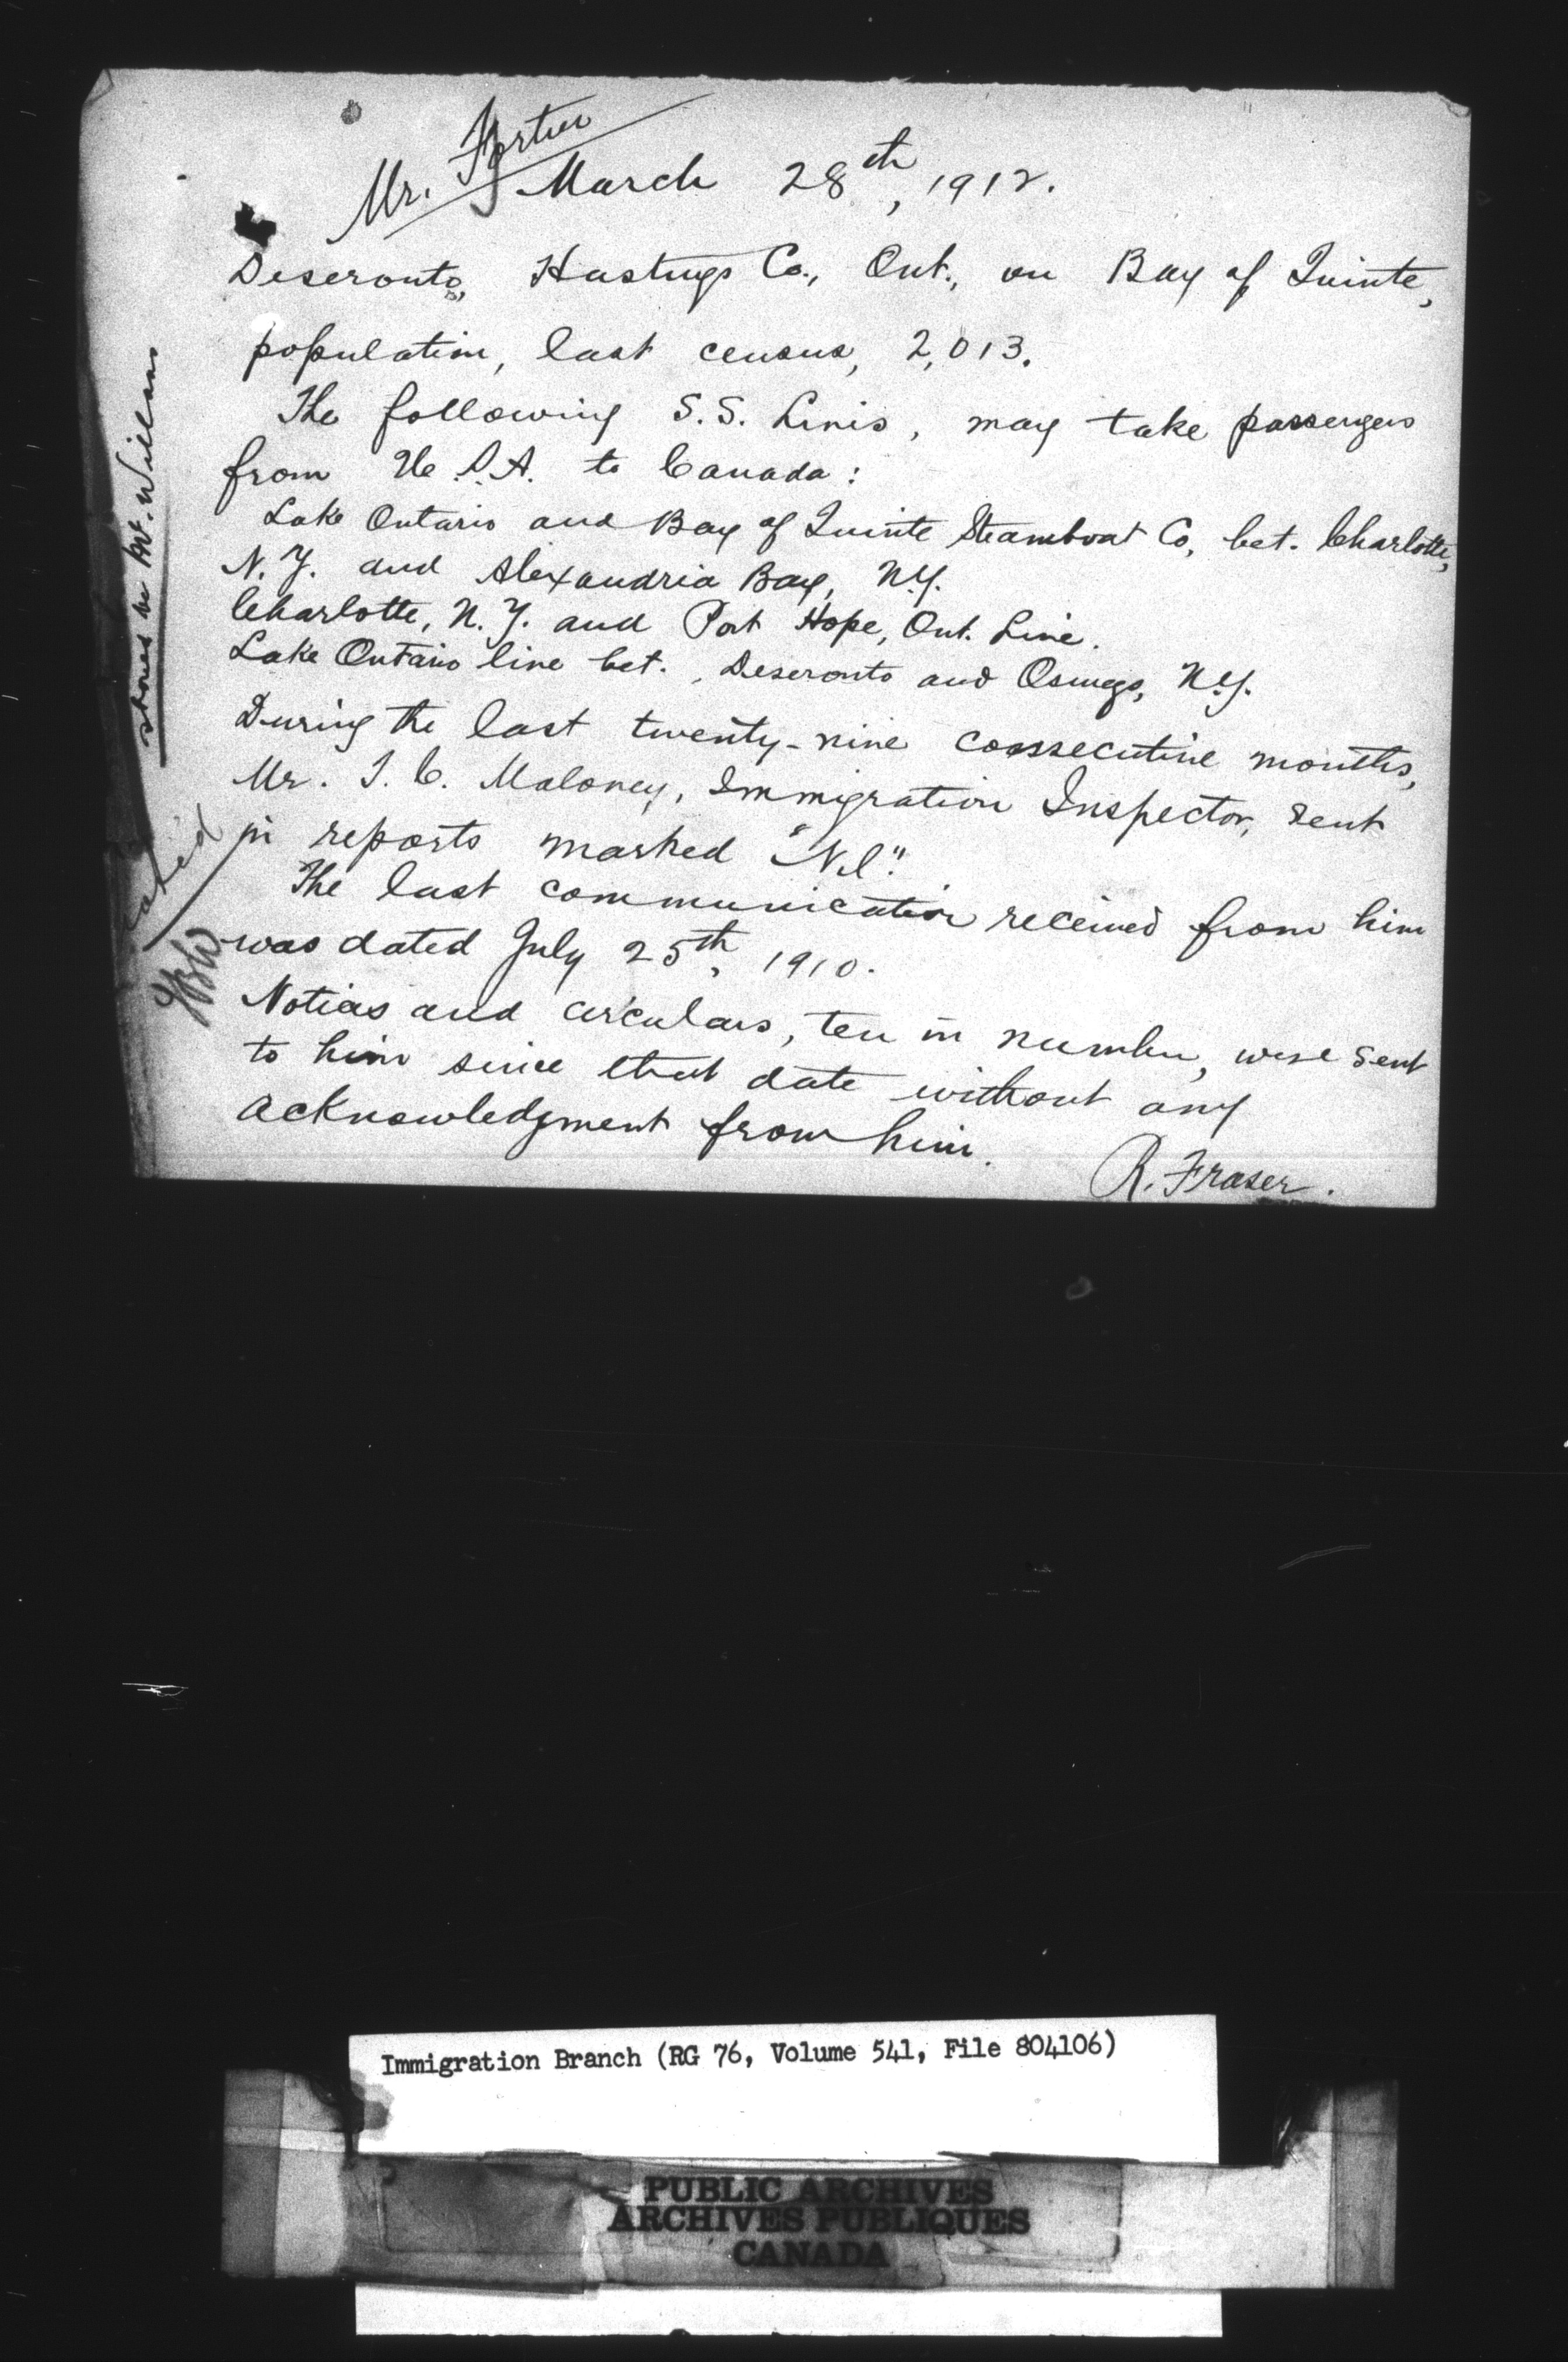 Mr. Fortier
March 28th, 1912.
Deseronto, Hastings Co., Ont., on Bay of Quinte,
population, last census, 2,013.
The following S.S. Lines, may take passengers
from U.S.A. to Canada:
Lake Ontario and Bay of Quinte Steamboat Co, bet. Charlotte,
N.Y. and Alexandria Bay, N.Y.
Charlotte, N.Y. and Port Hope, Ont. Line.
Lake Ontario line bet. Deseronto and Oswego, N.Y.
During the last twenty-nine consecutive months,
Mr. T. C. Maloney, Immigration Inspector, sent
in reports marked "Nil".
The last communication received from him
was dated July 25th, 1910.
Notices and circulars, ten in number, were sent
to him since that date without any
acknowledgment from him.
R. Fraser.
Immigration Branch (RG 76, Volume 541, File 804106)
PUBLIC ARCHIVES
ARCHIVES PUBLIQUES
CANADA